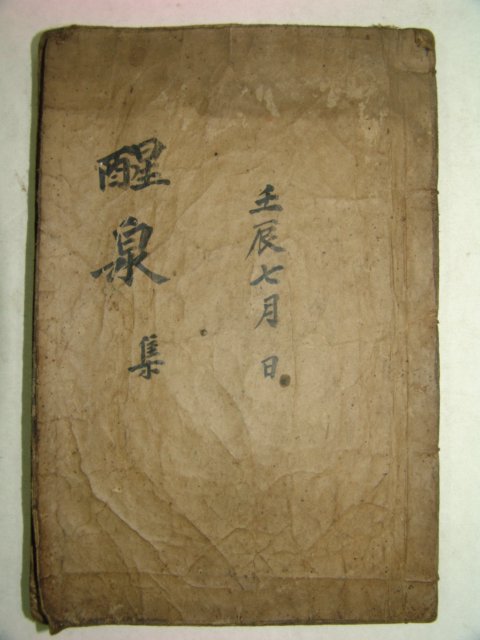 壬辰七月 日
醒泉集